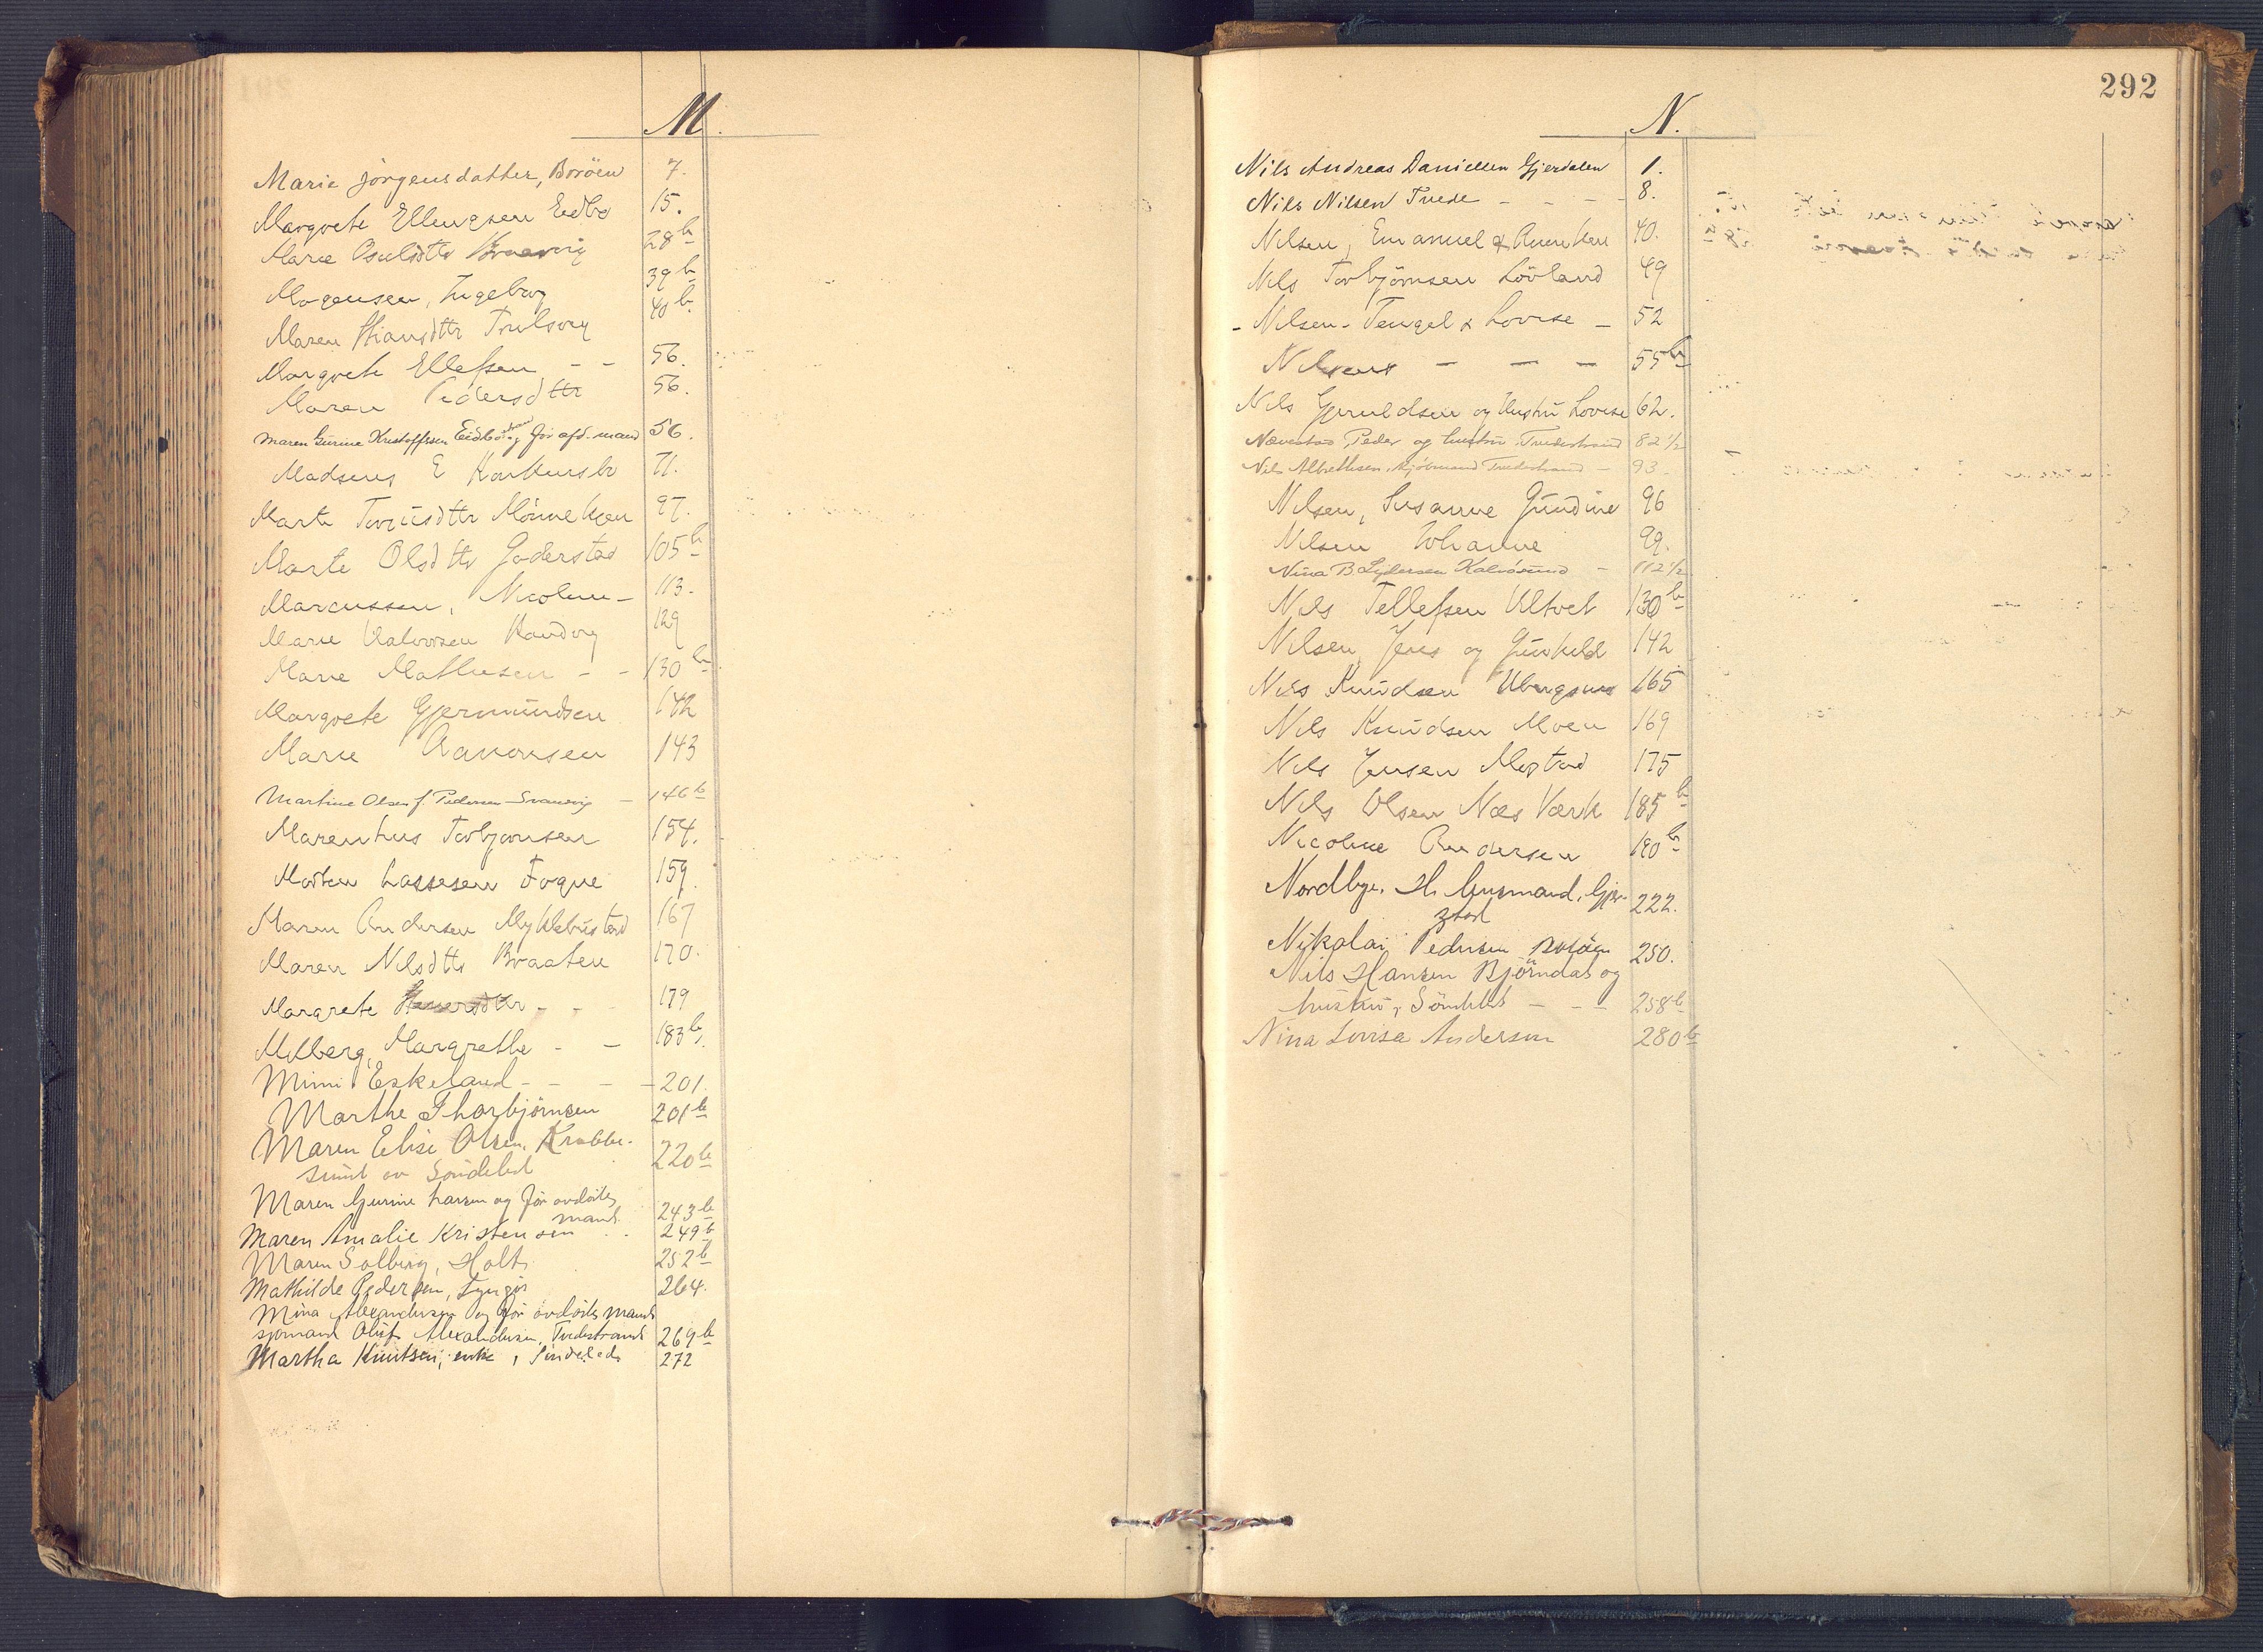 M.
Marie Jörgensdatter, Borøen 7.
Margrete Ellingsen Eidbo 15.
Marie Osulsdtr 28b
Mogensen, Ingeborg 39b
Maren Trulsvig 40b
Margrete Ellefsen - - 56.
Maren Pedersdtr 56.
Maren Gurine Kristoffersen Eidbo og for afd. mand 56.
Madsens E 71.
Marte 97.
Marte Olsdtr Goderstad 105b
Marcussen, Nicoline - 113.
Marie Halvorsen 129
Marie Mathisen - - 130b
Margrete Gjermundsen 142
Marie Aanonsen 143
Martine Olsen f. Pedersen Svanevig - 146b
Marenhus Torbjørnsen 154.
Morten Lassesen Fogne 159.
Maren Andersen Myklebustad 167
Maren Nilsdtr Braaten 170.
Margrete - - 179
Milberg, Margrethe - - 183b.
Mimi Eskeland - - - - 201.
Marthe Thorbjörnsen 201b
Maren Elise Olsen, Krabbe-
sund av Söndeled 220b
Maren Gurine Larsen og for avdøde
mand 243b
Maren Amalie Kristensen . . 249b
Maren Solberg, Holt. 252b
Mathilde Pedersen, Lyngør 264.
Mina Alexandersen og for avdøde mand
sjømand Oluf Alexandersen, Tvedestrand 269b
Martha Knutsen, enke, Söndeled 272
292
N.
Nils Andreas Danielsen Gjerdalen 1.
Nils Nilsen Tvede - - - - 8.
Nilsen, Emanuel & 40.
Nils Torbjörnsen Lövland 49
- Nilsen - Tengel & Lovise - 52
Nilsens - - - 55b
Nils Gjeruldsen og Hustru Lovise 62.
Nævestad, Peder og hustru Tvedestrand 82 1/2
Nils Albrethsen, kjöbmand Tvedestrand - 93.
Nilsen, Susanne Gundine 96
Nilsen Johanne 99.
Nina B. Lydersen Kalvösund - 112 1/2
Nils Tellefsen Ultvet 130b
Nilsen, Jens og Gunhild 142
Nils Knudsen Ubergsmo 165
Nils Knudsen Moen 169
Nils Jensen Mostad 175
Nils Olsen Næs Værk 185b
Nicoline Andersen 190b
Nordbye, H. Gjer-
stad 222.
Nikolai Pedersen Borøen 250.
Nils Hansen Björndas og
hustru, Söndeled - - - 258b
Nina Lovisa Andersen 280b